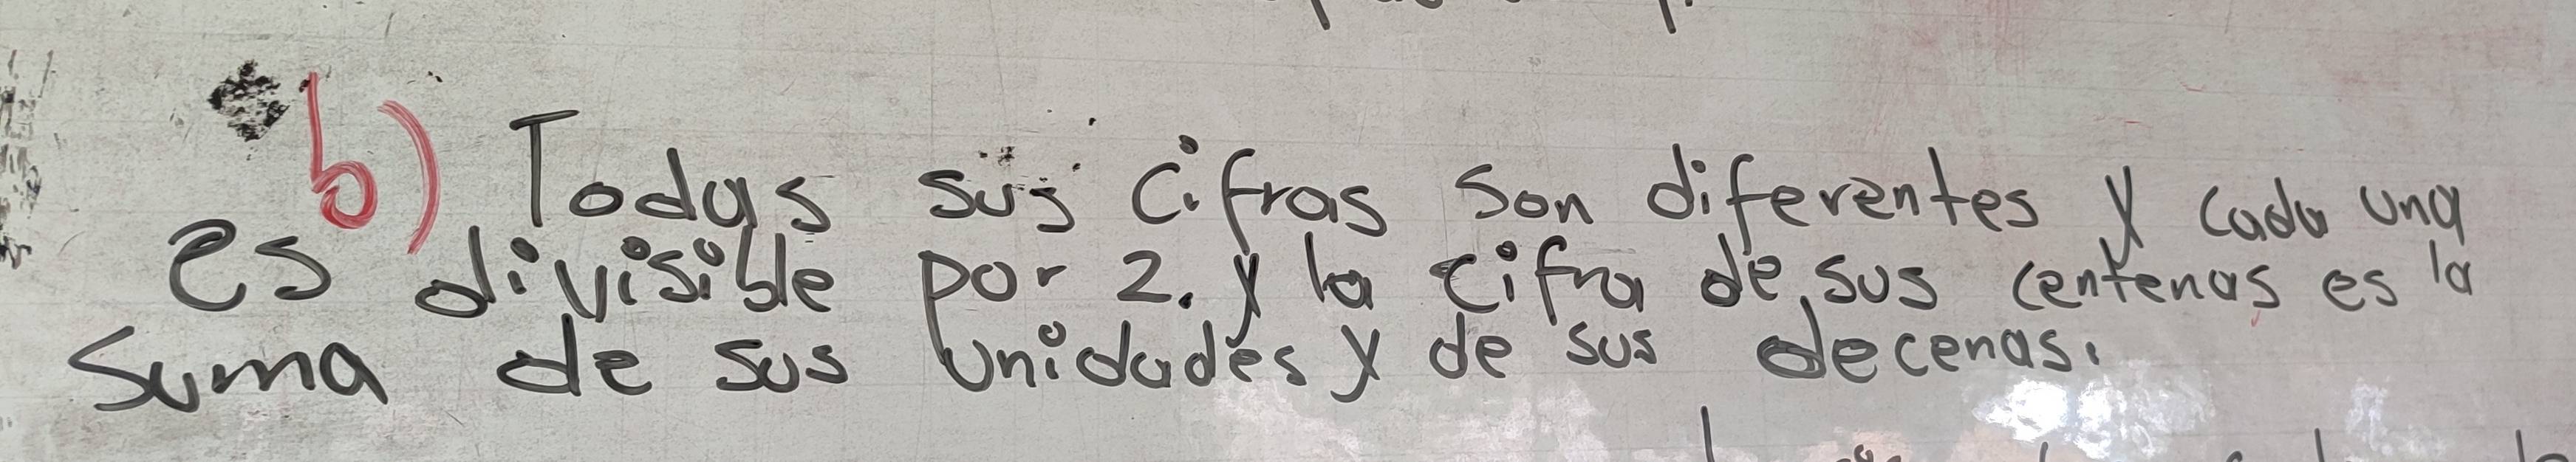 b) Todas sus cifras son diferentes y cada una
es divisible por 2. y la cifra de sus centenas es la
suma de sus unidades y de sus decenas.